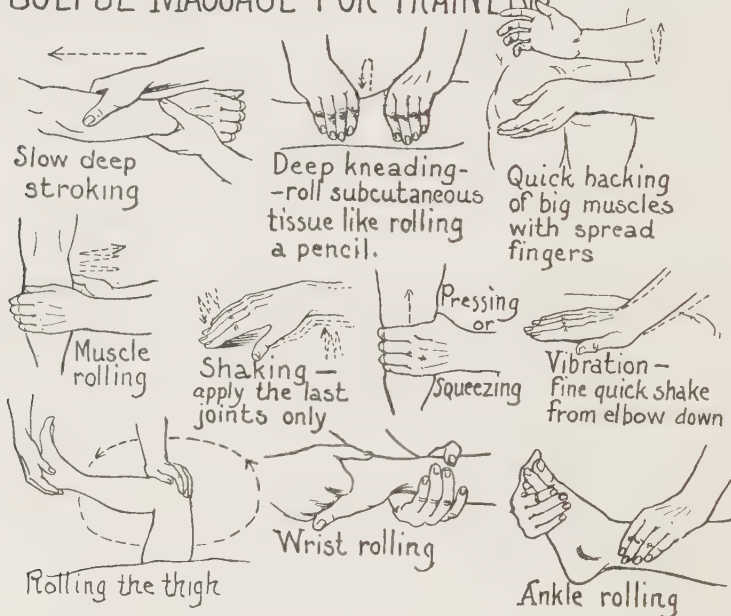 MASSAGE FOR
Slow deep
stroking
Deep kneading-
-roll subcutaneous
tissue like rolling
a pencil.
Quick hacking
of big muscles
with spread
fingers
Muscle
rolling
Shaking —
apply the last
joints only
Pressing
or
Squeezing
Vibration —
fine quick shake
from elbow down
Rolling the thigh
Wrist rolling
Ankle rolling